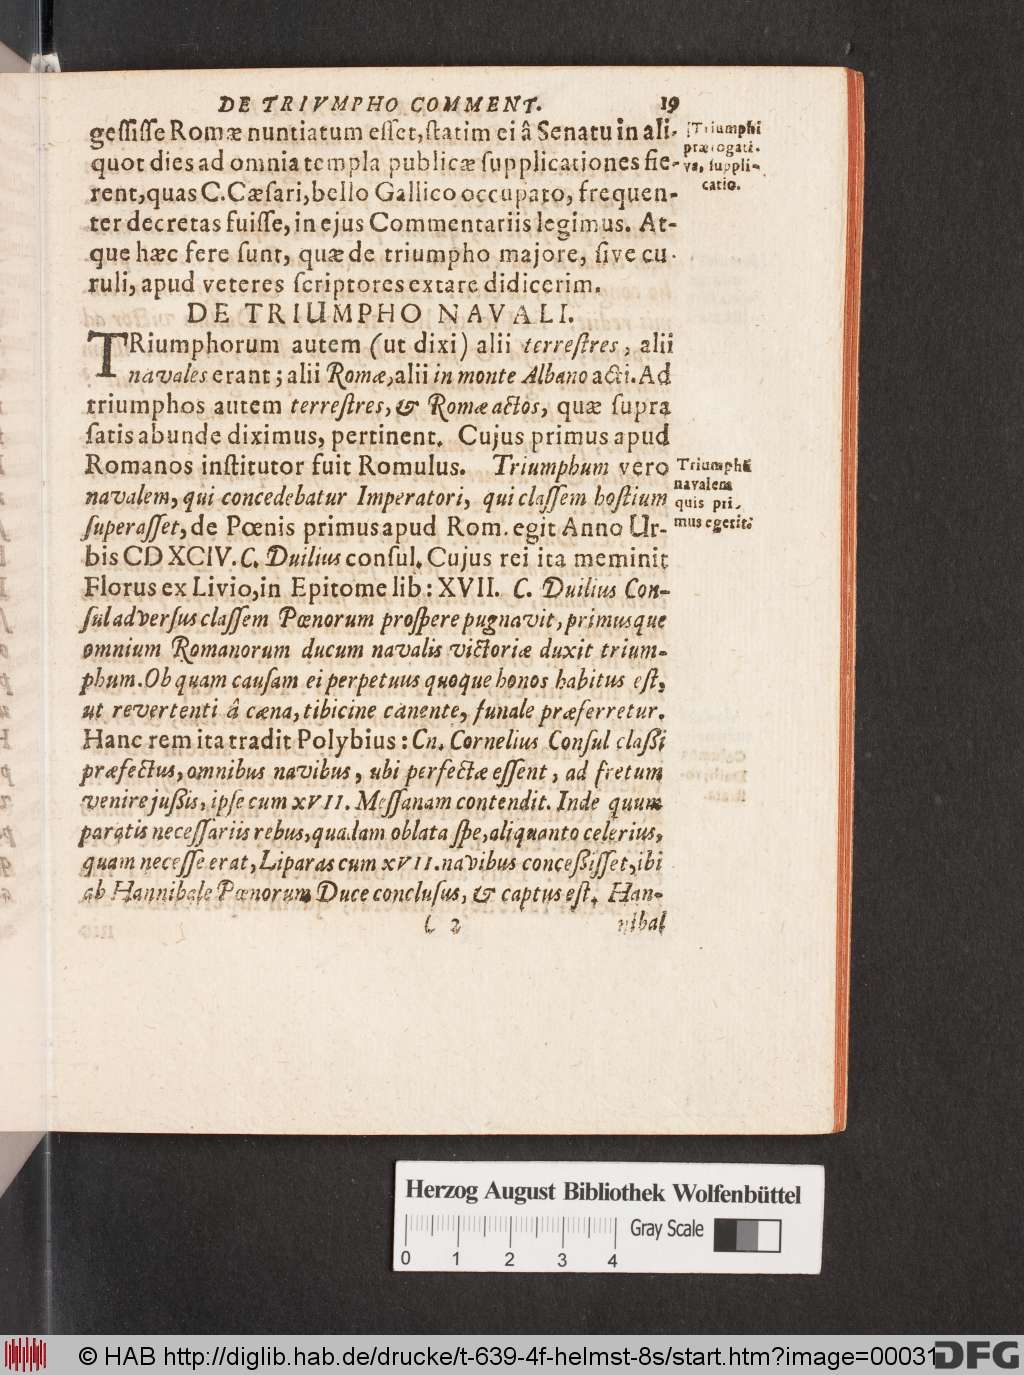 DE TRIVMPHO COMMENT. 19
geſſiſſe Romæ nuntiatum eſſet, ſtatim ei â Senatu in ali-
quot dies ad omnia templa publicæ ſupplicationes fie-
rent, quas C. Cæſari, bello Gallico occupato, frequen-
ter decretas fuiſſe, in ejus Commentariis legimus. At-
que hæc fere ſunt, quæ de triumpho majore, ſive cu-
ruli, apud veteres ſcriptores extare didicerim.
Triumphi
prærogati-
va, ſuppli-
catio.
DE TRIUMPHO NAVALI.
TRiumphorum autem (ut dixi) alii terreſtres, alii
navales erant; alii Romæ, alii in monte Albano acti. Ad
triumphos autem terreſtres, & Romæ actos, quæ ſupra
ſatis abunde diximus, pertinent. Cujus primus apud
Romanos inſtitutor fuit Romulus. Triumphum vero
navalem, qui concedebatur Imperatori, qui claſſem hoſtium
ſuperaſſet, de Pœnis primus apud Rom. egit Anno Ur-
bis CD XCIV. C. Duilius conſul. Cujus rei ita meminit
Florus ex Livio, in Epitome lib: XVII. C. Duilius Con-
ſul adverſus claſſem Pœnorum proſpere pugnavit, primusque
omnium Romanorum ducum navalis victoriæ duxit trium-
phum. Ob quam cauſam ei perpetuus quoque honos habitus eſt,
ut revertenti â cæna, tibicine canente, funale præferretur.
Hanc rem ita tradit Polybius: Cn. Cornelius Conſul claßi
præfectus, omnibus navibus, ubi perfectæ eſſent, ad fretum
venire jußis, ipſe cum XVII. Meſſanam contendit. Inde quum
paratis neceſſariis rebus, quadam oblata ſpe, aliquanto celerius,
quam neceſſe erat, Liparas cum XVII. navibus conceßiſſet, ibi
ab Hannibale Pœnorum Duce concluſus, & captus eſt. Han-
Triumphũ
navalem
quis pri-
mus egerit?
C 2 nibal
Herzog August Bibliothek Wolfenbüttel
Gray Scale
0 1 2 3 4
© HAB http://diglib.hab.de/drucke/t-639-4f-helmst-8s/start.htm?image=00031
DFG